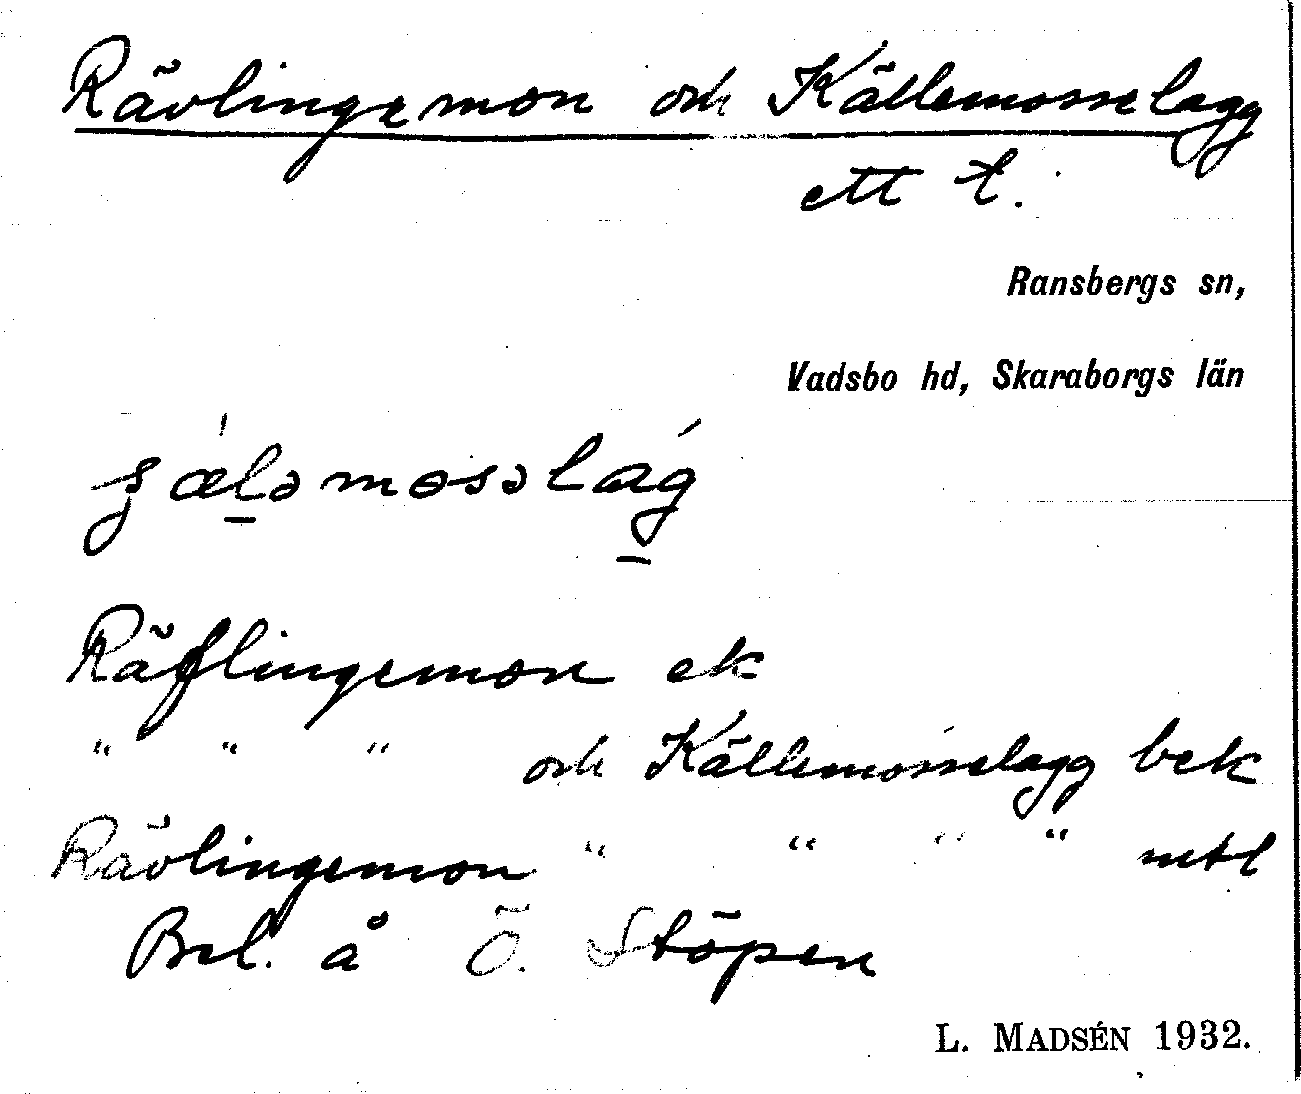 Rävlingemon och Källemosselagg
ett t.
Ransbergs sn,
Vadsbo hd, Skaraborgs län
Räflingemon ek
" " " och Källemosselagg bek
Rävlingemon " " " " mtl
Bel. å Ö. Stöpen
L. MADSÉN 1932.